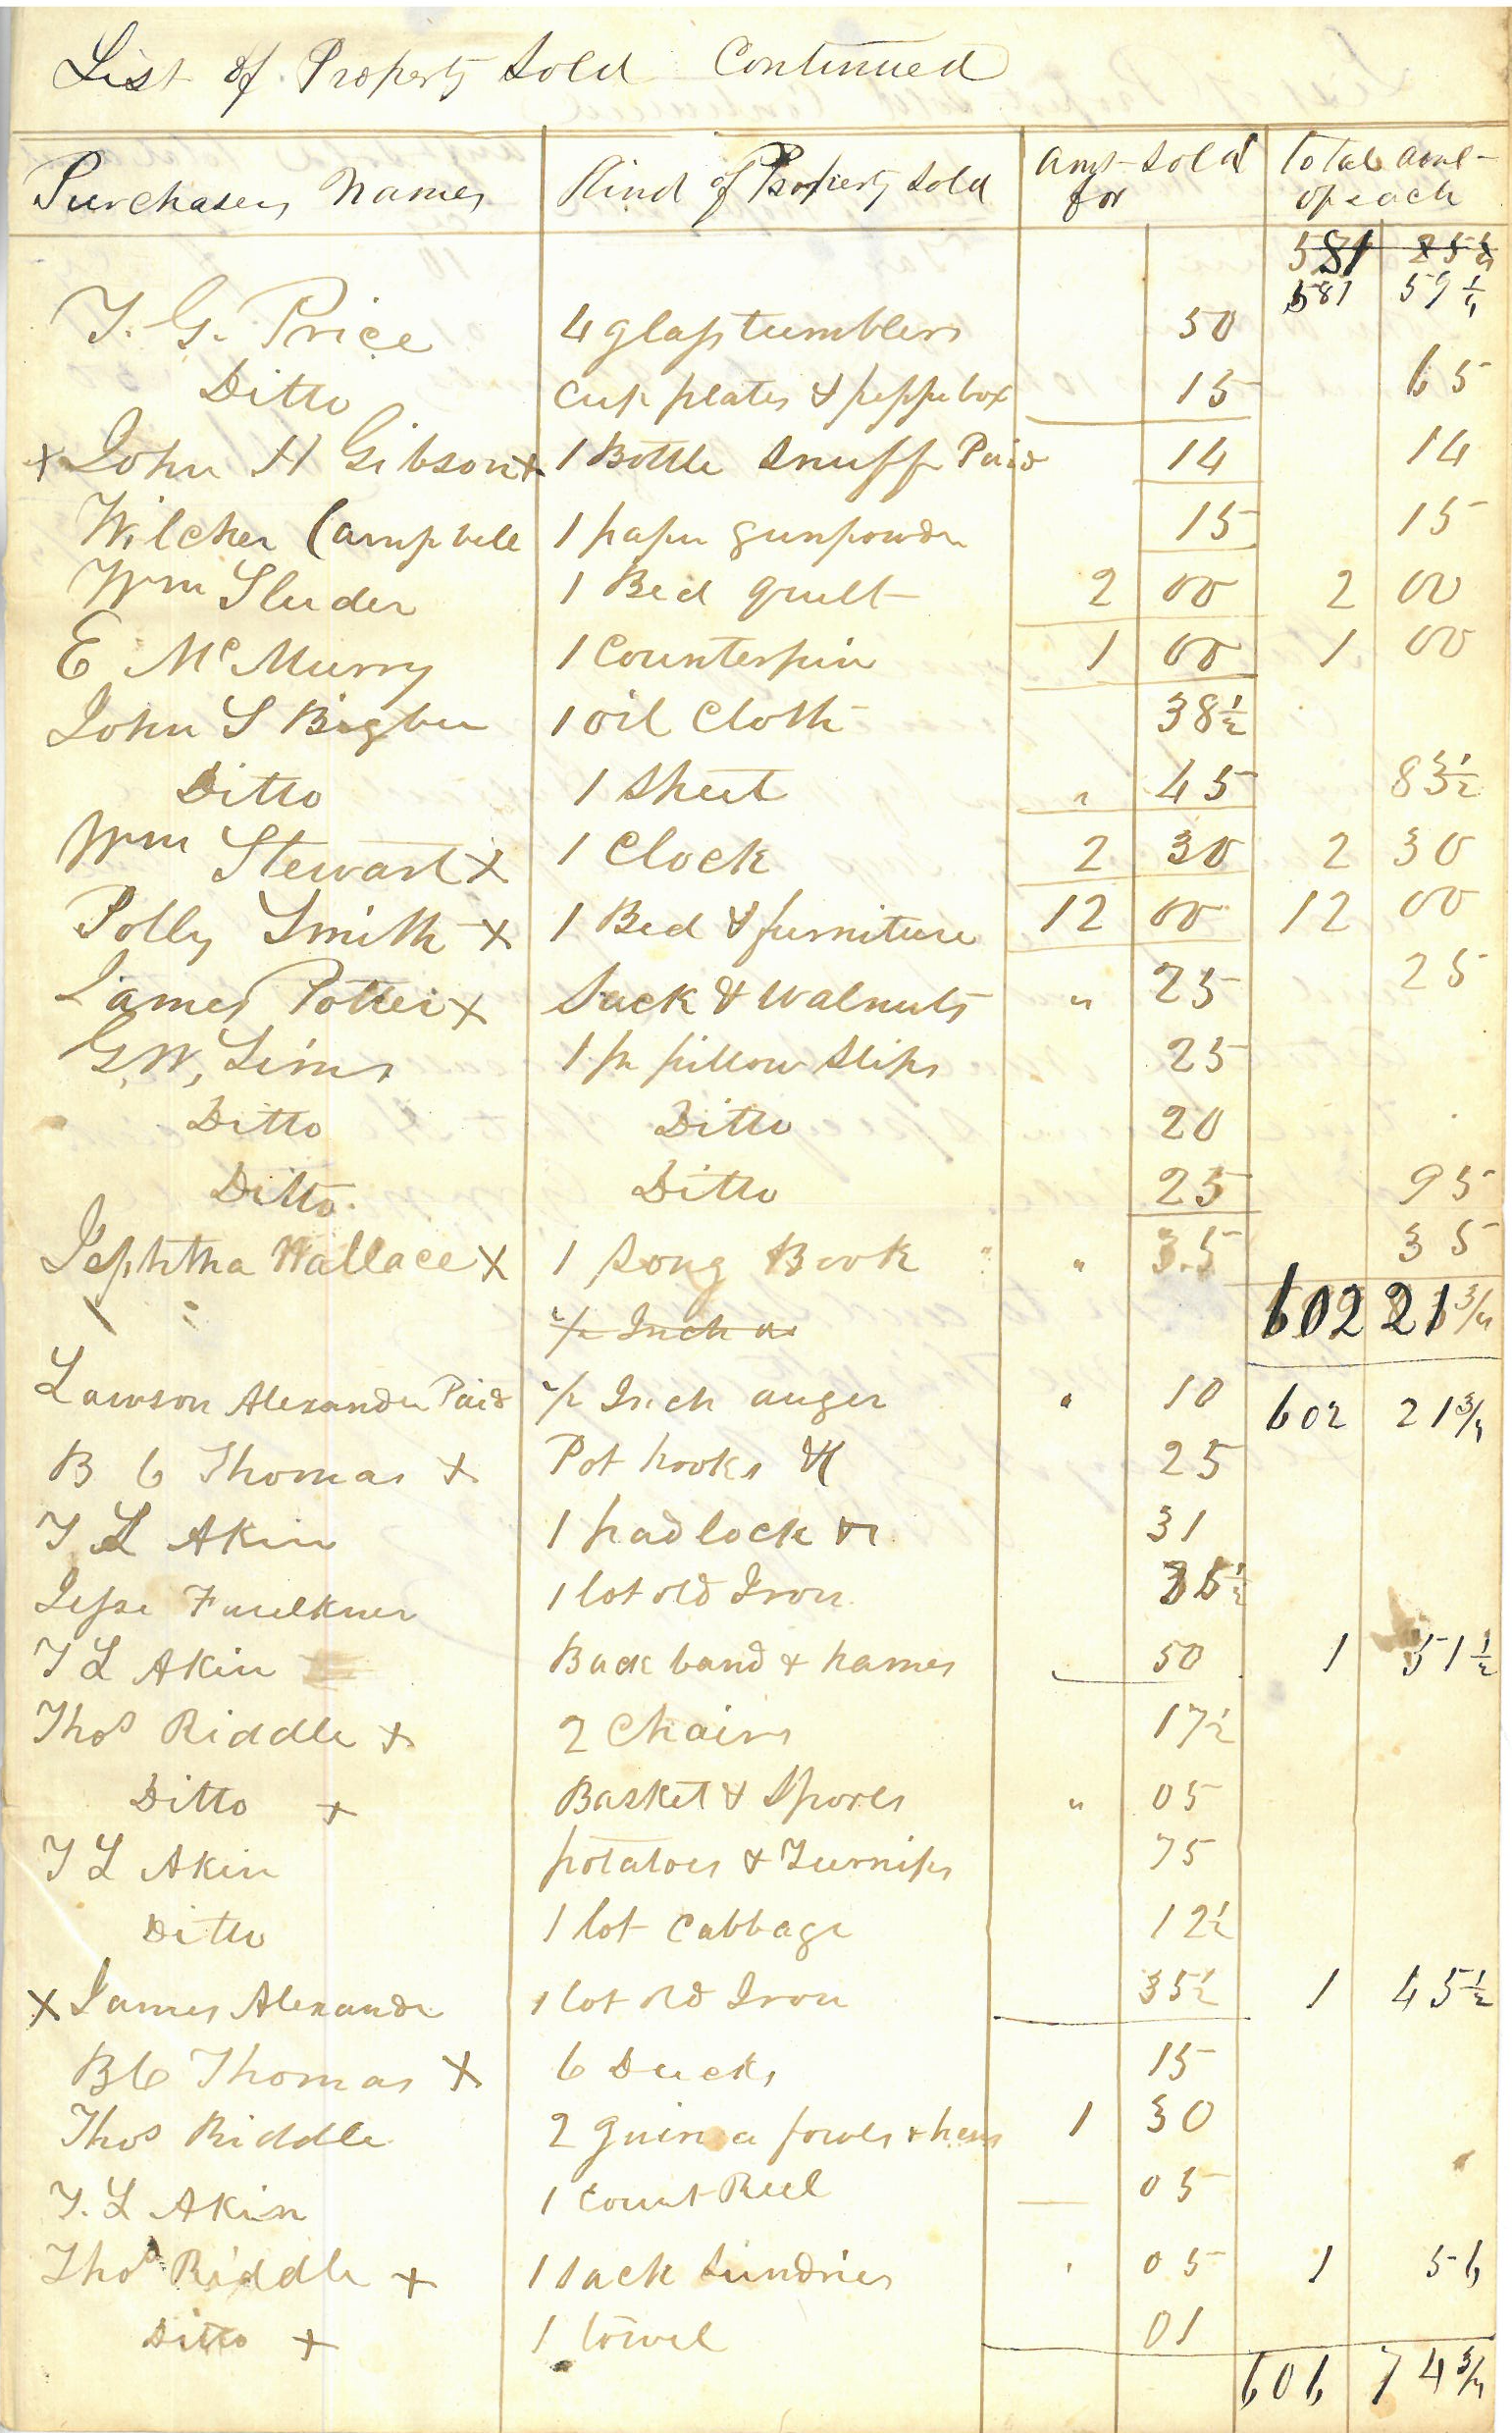 List of Property Sold Continued
Purchasers Names Kind of Property Sold amt sold for total amt of each
581 25
581 59 1/4
T. G. Price 4 glass tumblers 50
Ditto Cup plates & peppe box 15 65
x John H Gibson x 1 Bottle Snuff Paid 14 14
Wilcher Campbell 1 paper gunpowder 15 15
Wm Sluder 1 Bed quilt 2 00 2 00
E McMurry 1 Counterpin 1 00 1 00
John S Bigbee 1 oil Cloth 38 1/2
Ditto 1 Sheet " 45 83 1/2
Wm Stewart x 1 Clock 2 30 2 30
Polly Smith x 1 Bed & furniture 12 00 12 00
James Potter x Sack & Walnuts " 25 25
G.W. Sims 1 pr pillow slips 25
Ditto Ditto 20
Ditto Ditto 25 95
Jephtha Wallace x 1 Song Book " 35 35
1/2 Inch a 602 21 3/4
Lawson Alexander Paid 1/2 Inch auger " 10 602 21 3/4
B C Thomas x Pot hooks &c 25
T L Akin 1 padlock &c 31
Jesse Faulkner 1 lot old Iron 35 1/2
T L Akin Back band & hames 50 1 51 1/2
Thos Riddle x 2 Chairs 17 1/2
Ditto x Basket & Spools " 05
T L Akin potatoes & Turnips 75
Ditto 1 lot Cabbage 12 1/2
x James Alexander 1 lot old Iron 35 1/2 1 45 1/2
B C Thomas x 6 Ducks 15
Thos Riddle 2 guinea fowls & hens 1 30
T. L Akin 1 Count Reel 05
Thos Riddle x 1 Sack Sundries 05 1 56
Ditto x 1 towel 01
606 74 3/4